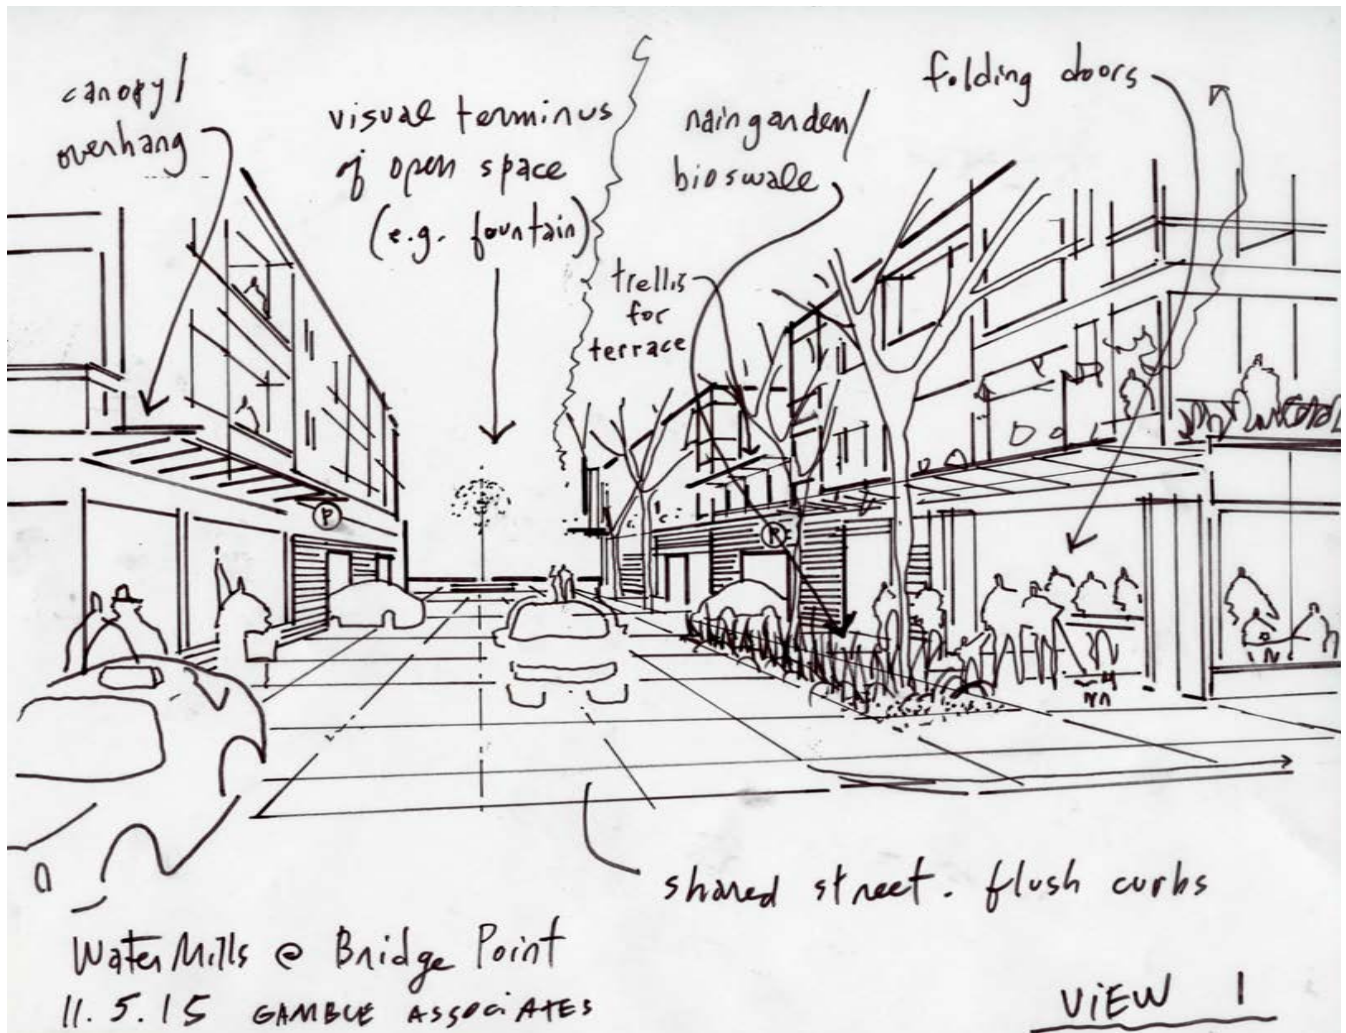 canopy/
overhang
visual terminus
of open space
(e.g. fountain)
raingarden/
bioswale
folding doors
trellis
for
terrace
P
P
shared street. flush curbs
WaterMills @ Bridge Point
11.5.15 GAMBLE ASSOCIATES
VIEW 1